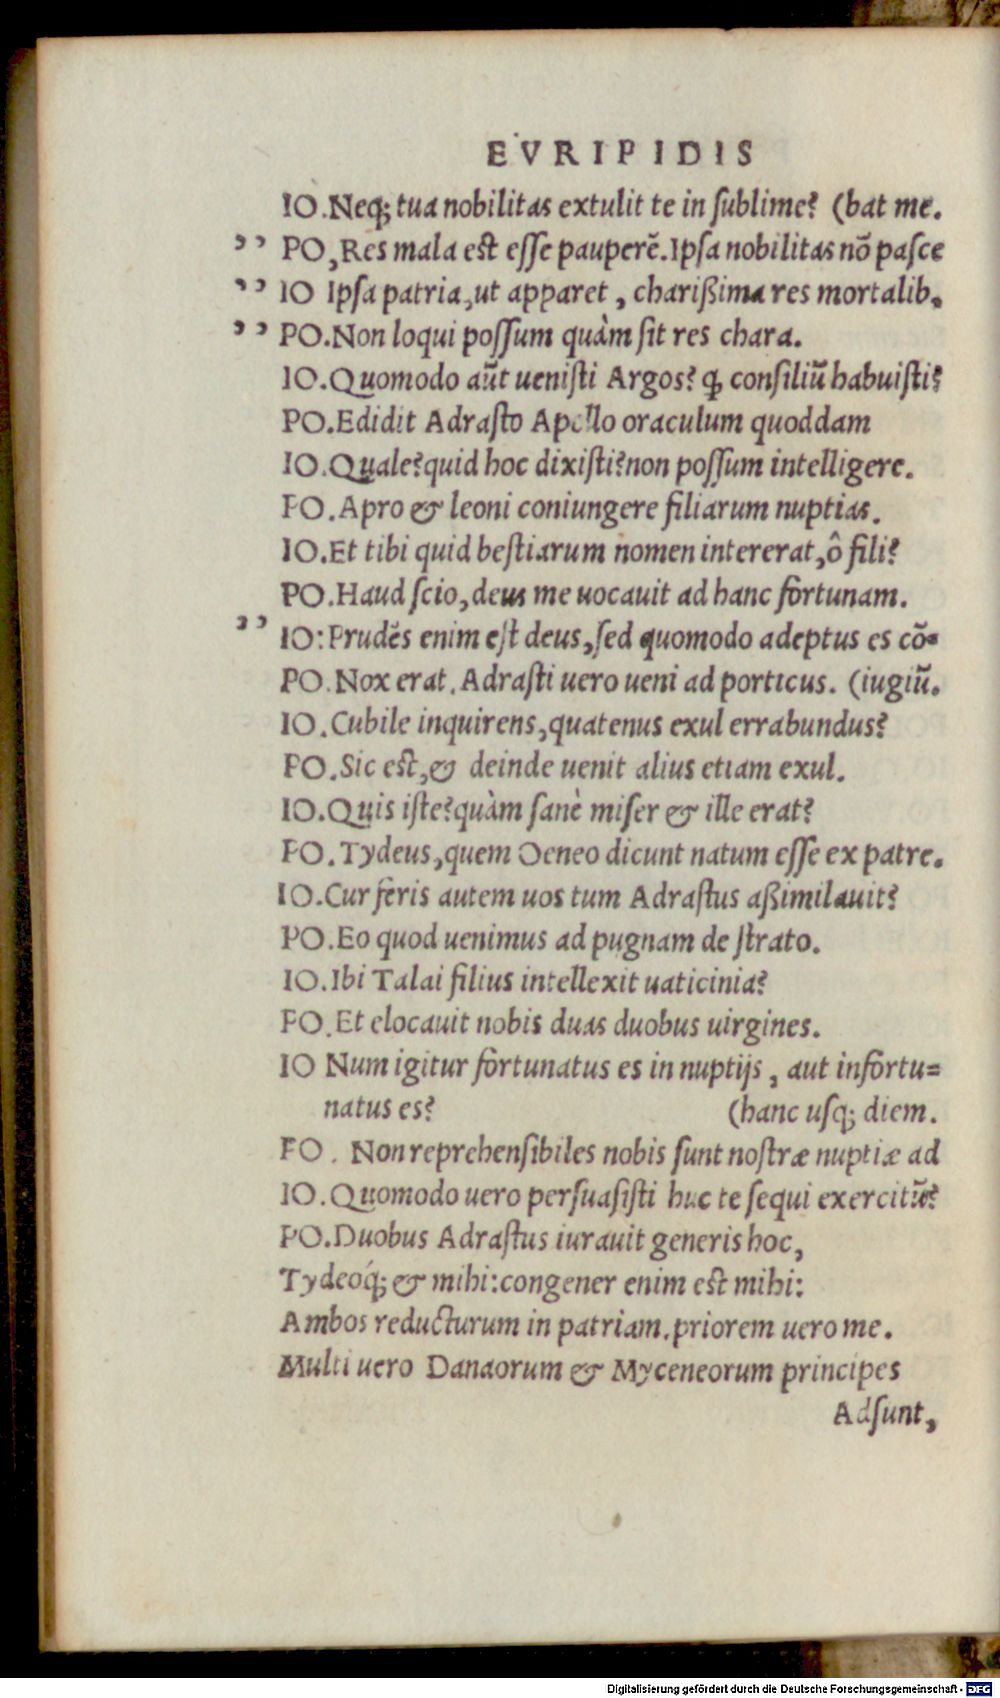 EVRIPIDIS
IO.Neq; tua nobilitas extulit te in ſublime? (bat me.
,, PO,Res mala est eſſe pauperẽ.Ipſa nobilitas nõ paſce
,, IO Ipſa patria,ut apparet, chariſſima res mortalib.
,, PO.Non loqui poſſum quàm ſit res chara.
IO.Quomodo aũt ueniſti Argos? ꝗ conſiliũ habuiſti?
PO.Edidit Adraſto Apollo oraculum quoddam
IO.Quale?quid hoc dixiſti?non poſſum intelligere.
PO.Apro & leoni coniungere filiarum nuptias.
IO.Et tibi quid beſtiarum nomen intererat,ô fili?
PO.Haud ſcio,deus me uocauit ad hanc fortunam.
,, IO:Prudẽs enim eſt deus,ſed quomodo adeptus es cõ=
PO.Nox erat.Adraſti uero ueni ad porticus. (iugiũ.
IO.Cubile inquirens,quatenus exul errabundus?
PO.Sic est,& deinde uenit alius etiam exul.
IO.Quis iſte?quàm ſanè miſer & ille erat?
PO.Tydeus,quem Oeneo dicunt natum eſſe ex patre.
IO.Cur feris autem uos tum Adraſtus aßimilauit?
PO.Eo quod uenimus ad pugnam de ſtrato.
IO.Ibi Talai filius intellexit uaticinia?
PO.Et elocauit nobis duas duobus uirgines.
IO Num igitur fortunatus es in nuptijs, aut infortu=
natus es? (hanc uſq; diem.
PO. Non reprehenſibiles nobis ſunt noſtræ nuptiæ ad
IO.Quomodo uero perſuaſiſti huc te ſequi exercitũ?
PO.Duobus Adraſtus iurauit generis hoc,
Tydeoq́; & mihi:congener enim est mihi:
Ambos reducturum in patriam.priorem uero me.
Multi uero Danaorum & Myceneorum principes
Adſunt,
Digitalisierung gefördert durch die Deutsche Forschungsgemeinschaft - DFG